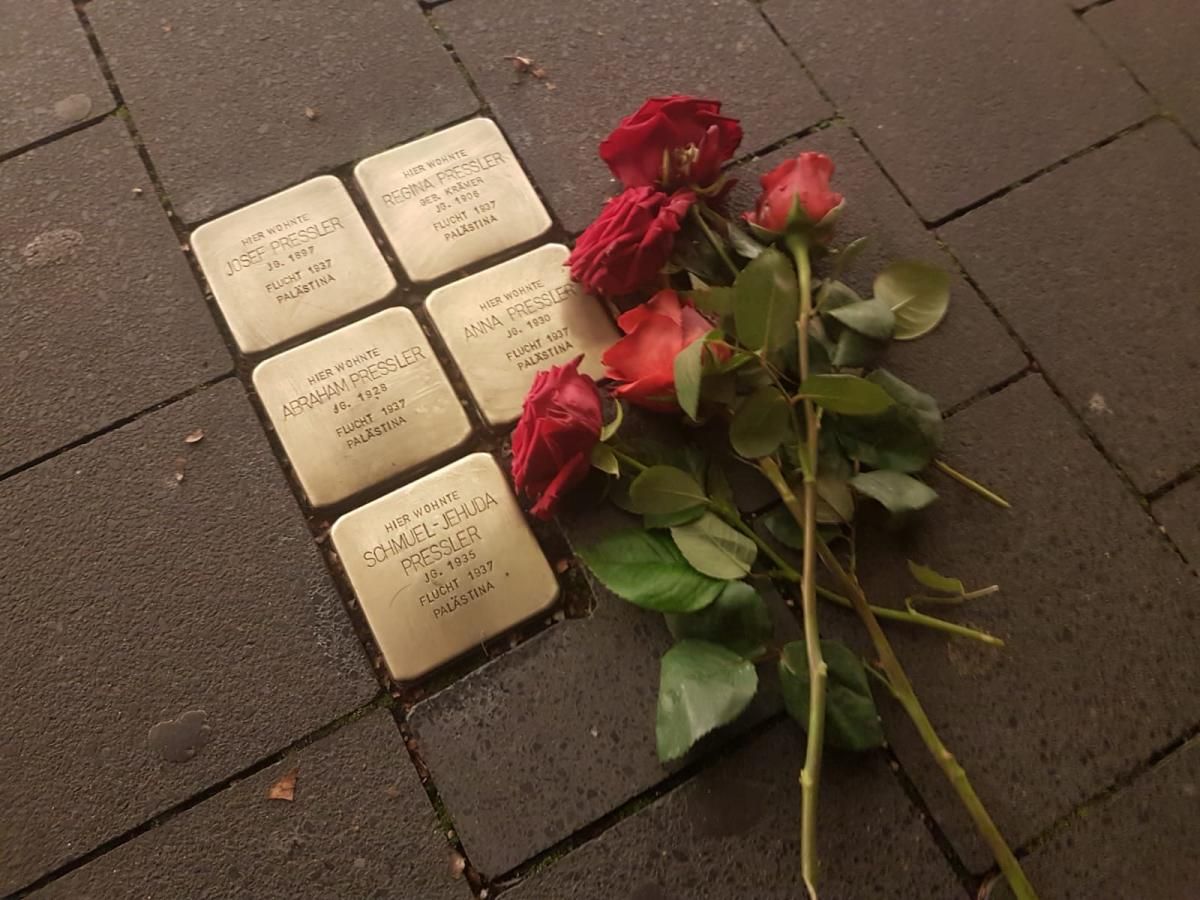 HIER WOHNTE
JOSEF PRESSLER
JG. 1897
FLUCHT 1937
PALÄSTINA
HIER WOHNTE
REGINA PRESSLER
GEB. KRÄMER
JG. 1906
FLUCHT 1937
PALÄSTINA
HIER WOHNTE
ABRAHAM PRESSLER
JG. 1928
FLUCHT 1937
PALÄSTINA
HIER WOHNTE
ANNA PRESSLER
JG. 1930
FLUCHT 1937
PALÄSTINA
HIER WOHNTE
SCHMUEL-JEHUDA
PRESSLER
JG. 1935
FLUCHT 1937
PALÄSTINA